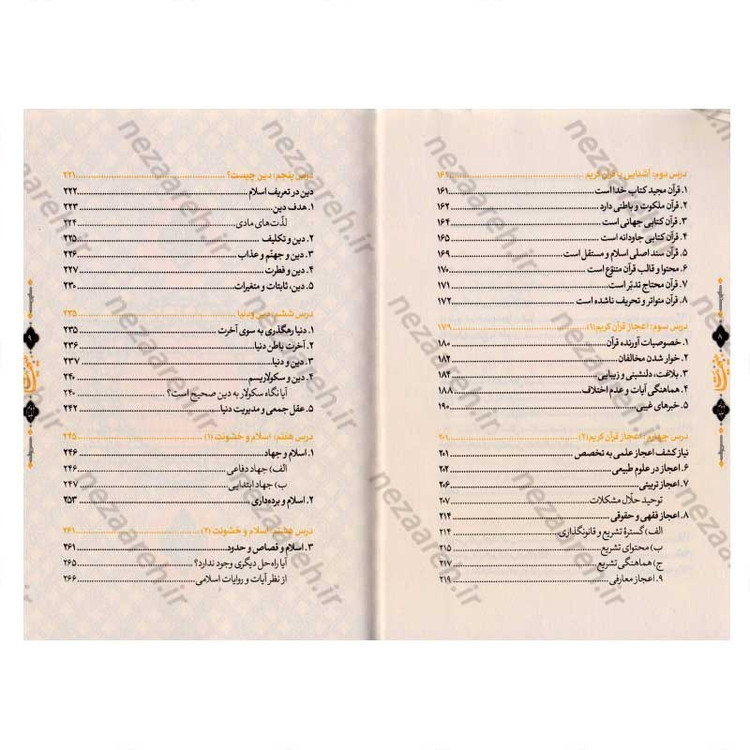 درس دوم: آشنایی با قرآن کریم ۱۶۱
۱. قرآن مجید کتاب خدا است ۱۶۱
۲. قرآن ملکوت و باطنی دارد ۱۶۲
۳. قرآن کتابی جهانی است ۱۶۴
۴. قرآن کتابی جاودانه است ۱۶۵
۵. قرآن سند اصلی اسلام و مستقل است ۱۶۹
۶. محتوا و قالب قرآن متنوّع است ۱۷۰
۷. قرآن محتاج تدبّر است ۱۷۱
۸. قرآن متواتر و تحریف ناشده است ۱۷۲
درس سوم: اعجاز قرآن کریم (۱) ۱۷۹
۱. خصوصیات آورنده قرآن ۱۸۰
۲. خوار شدن مخالفان ۱۸۲
۳. بلاغت، دلنشینی و زیبایی ۱۸۴
۴. هماهنگی آیات و عدم اختلاف ۱۸۸
۵. خبرهای غیبی ۱۹۰
درس چهارم: اعجاز قرآن کریم (۲) ۲۰۱
نیاز کشف اعجاز علمی به تخصص ۲۰۱
۶. اعجاز در علوم طبیعی ۲۰۲
۷. اعجاز تربیتی ۲۰۶
توحید حلّال مشکلات ۲۰۷
۸. اعجاز فقهی و حقوقی ۲۱۴
الف) گسترهٔ تشریع و قانونگذاری ۲۱۴
ب) محتوای تشریع ۲۱۵
ج) هماهنگی تشریع ۲۱۷
۹. اعجاز معارفی ۲۱۹
۸
درس پنجم: دین چیست؟ ۲۲۱
دین در تعریف اسلام ۲۲۲
۱. هدف دین ۲۲۳
لذّت‌های مادی ۲۲۴
۲. دین و تکلیف ۲۲۵
۳. دین و جهنّم و عذاب ۲۲۶
۴. دین و فطرت ۲۲۷
۵. دین، ثابتات و متغیرات ۲۳۰
درس ششم: دین و دنیا ۲۳۵
۱. دنیا رهگذری به سوی آخرت ۲۳۵
۲. آخرت باطن دنیا ۲۳۶
۳. دین و دنیا ۲۳۷
۴. دین و سکولاریسم ۲۴۰
آیا نگاه سکولار به دین صحیح است؟ ۲۴۰
۵. عقل جمعی و مدیریت دنیا ۲۴۲
درس هفتم: اسلام و خشونت (۱) ۲۴۵
۱. اسلام و جهاد ۲۴۶
الف) جهاد دفاعی ۲۴۶
ب) جهاد ابتدایی ۲۴۷
۲. اسلام و برده‌داری ۲۵۳
درس هشتم: اسلام و خشونت (۲) ۲۶۱
۳. اسلام و قصاص و حدود ۲۶۱
آیا راه حل دیگری وجود ندارد؟ ۲۶۵
از نظر آیات و روایات اسلامی ۲۶۶
۹
nezaareh.ir